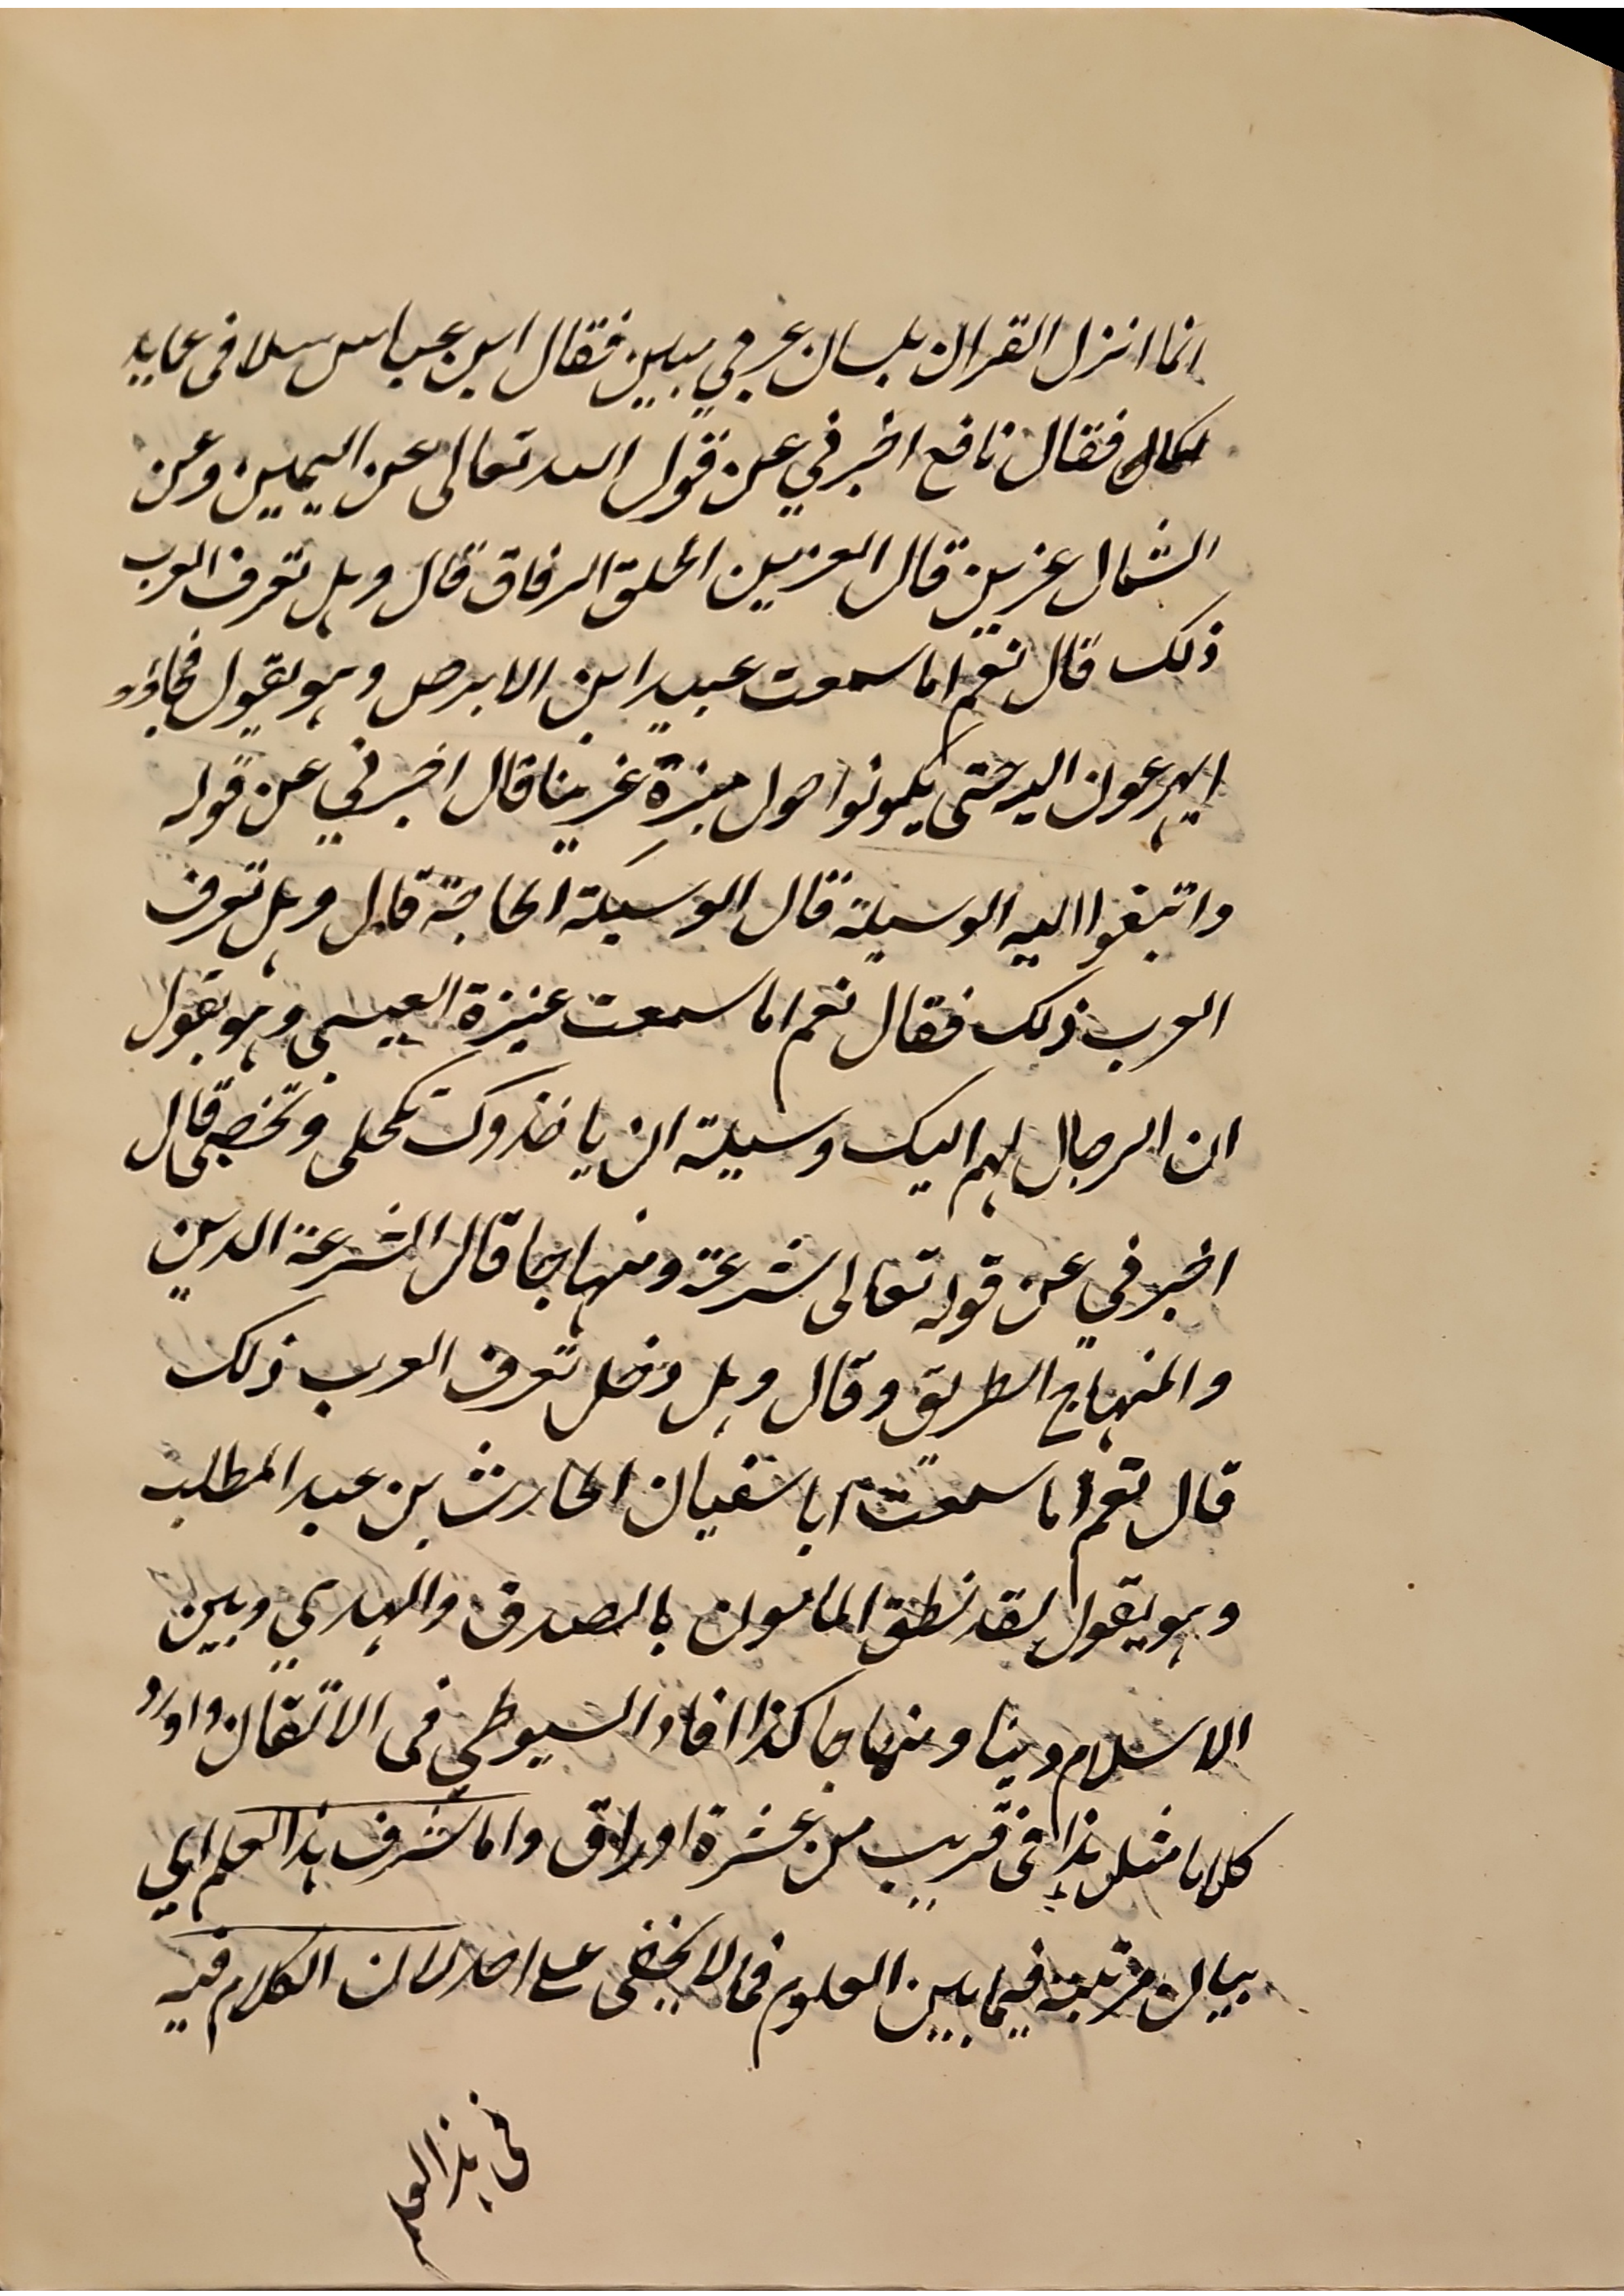 انما انزل القران بلسان عربي مبين فقال ابن عباس سلا فى عما بد
لكما فقال نافع اخبرني عن قول الله تعالى عن اليمين وعن
الشمال عزين قال العزين الحلق الرفاق قال وهل تعرف العرب
ذلك قال نعم اما سمعت عبيد ابن الابرص وهو يقول فجاؤوا
يهرعون اليه حتى يكونوا حول منبره عزينا قال اخبرني عن قوله
وابتغوا اليه الوسيلة قال الوسيلة الحاجة قال وهل تعرف
العرب ذلك فقال نعم اما سمعت عنيزة العبسي وهو يقول
ان الرجال لهم اليك وسيلة ان ياخذوك تكحلى وتخضبى قال
اخبرني عن قوله تعالى شرعة ومنهاجا قال الشرعة الدين
والمنهاج الطريق وقال وهل وهل تعرف العرب ذلك
قال نعم اما سمعت ابا سفيان الحارث بن عبد المطلب
وهو يقول لقد نطق المامون بالصدق والهدي وبين
الاسلام دينا ومنهاجا كذا افاد السيوطي فى الاتقان واورد
كلاما مثل هذا فى قريب من عشرة اوراق واما شرف هذا العلم اي
بيان مرتبته فيما بين العلوم فمما لا يخفى على احد لان الكلام فيه
فى هذا العلم